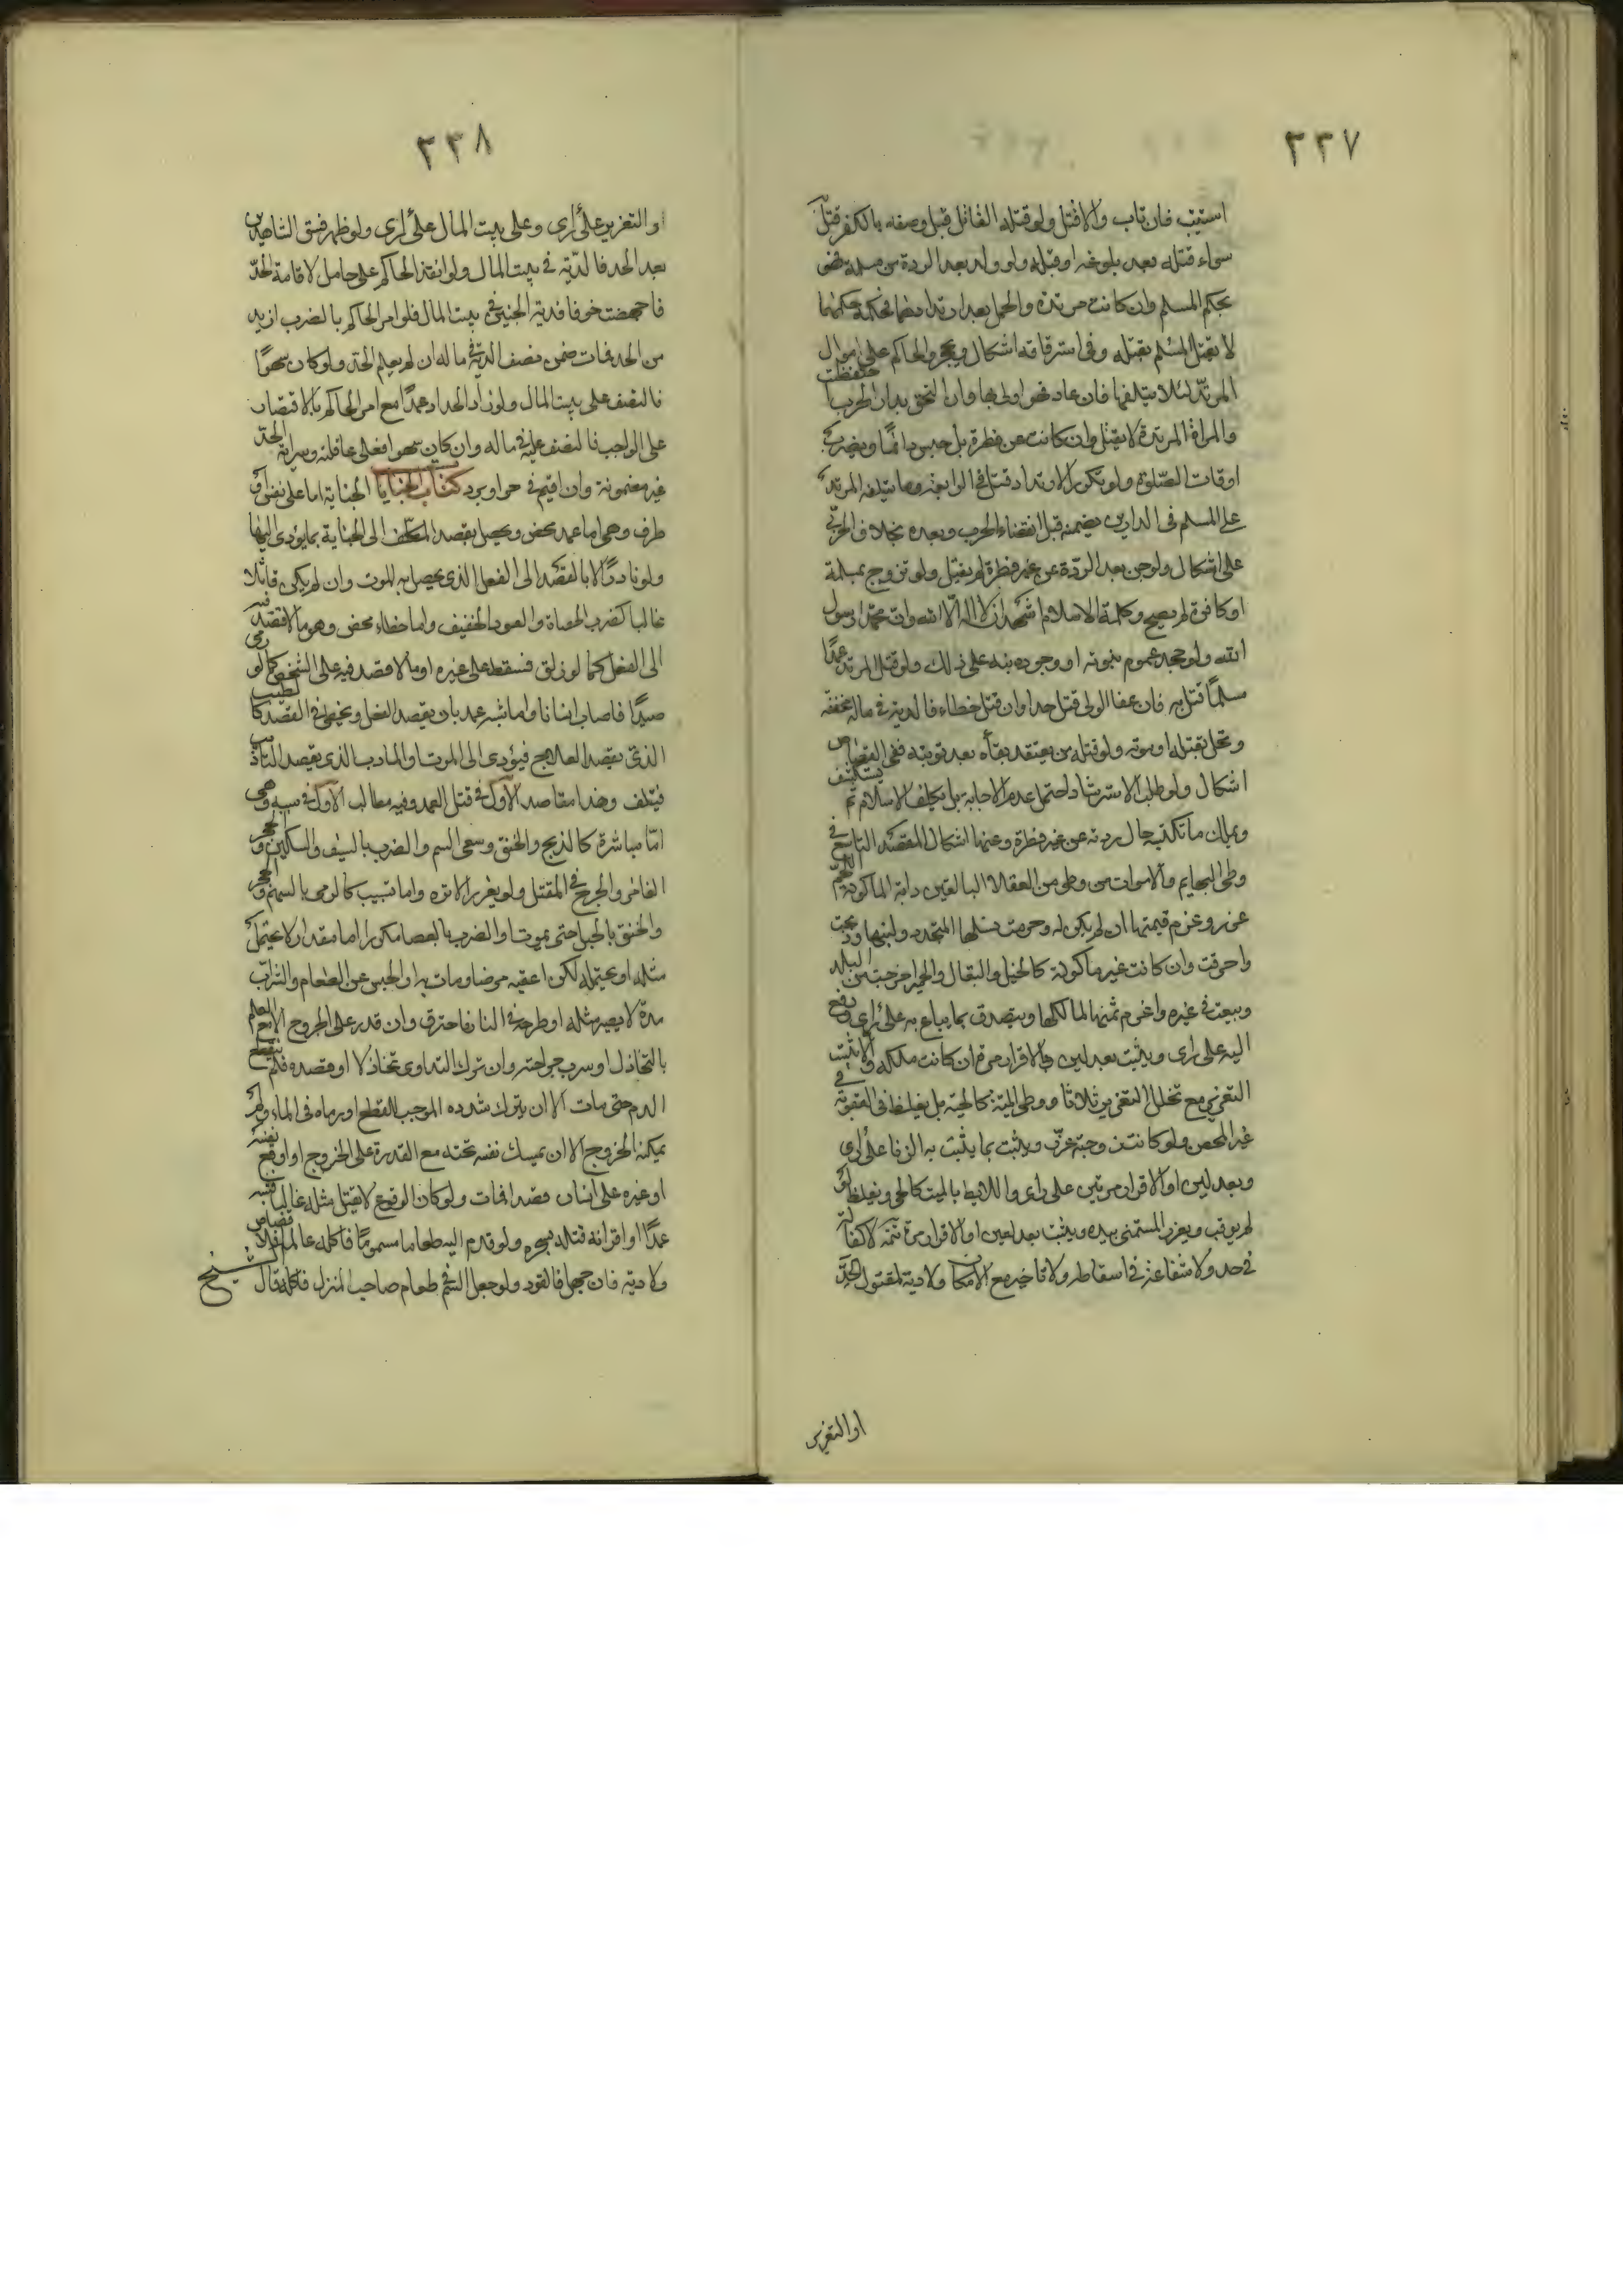 ٢٣٧
استتيب فان تاب والا قتل ولو قتله القاتل قبل وصفه بالكفر قتل
سواء قتله بعد بلوغه او قبله ولو ولد بعد الردة من مسلمة فهو
بحكم المسلم وان كانت مرتدة والحمل بعد ارتدادهما فحكمه حكمهما
لا يقتل المسلم بقتله وفى استرقاقه اشكال ويحجر الحاكم على اموال
المرتد لئلا يتلفها فان عاد فهو اولى بها وان التحق بدار الحرب احتفظت
والمراة المرتدة لا يقتل وان كانت عن فطرة بل تحبس دائمًا ويضرب
اوقات الصلوة ولو تكرر الارتداد قتل فى الرابعة وما يتلفه المرتد
على المسلم فى الدارين يضمنه قبل انقضاء الحرب وبعده بخلاف الحربى
على اشكال ولو جن بعد الردة عن غير فطرة لم يقتل ولو تزوج بمسلمة
او كافرة لم يصح وكلمة الاسلام اشهد ان لا اله الا الله وان محمدا رسول
الله ولو جحد عموم نبوته او وجوده نبه على ذلك ولو قتل المرتد عمدًا
مسلمًا قتل به فان عفا الولى قتل حدا وان قتل خطاء فالدية فى ماله مخففة
وتحل بقتله او موته ولو قتله من يعتقد بقاه بعد توبته ففى القصاص
اشكال ولو طلب الاسترشاد احتمل عدم الاجابة بل يكلف الاسلام ثم يستكشف
ويملك ما تكتبه حال ردته عن غير فطرة وعنها اشكال المقصد التاسع فى
وطى البهايم والاموات من وطى من العقلاء البالغين دابة الماكولة اللحم
عزر وغرم قيمتها ان لم يكن له وحرمت نسلها المتجدد ولبنها وذبحت
واحرقت وان كانت غير ماكولة كالخيل والبغال والحمير اخرجت من البلد
وبيعت فى غيره واغرم ثمنها لمالكها ويتصدق بما يباع به على راى ودفع
اليه على راى ويثبت بعدلين والاقرار مرة ان كانت ملكه والا ثبت
التعزير مع تخلل التعزير ثلاثا ووطى الميتة كالحية بل يغلظ فى العقوبة فى
غير المحصن ولو كانت زوجته عزر ويثبت بما يثبت به الزنا على راى
وبعدلين او الاقرار مرتين على راى واللائط بالميت كالحى ويغلظ لو
لم يوقب ويعزر المستمنى بيده ويثبت بعدلين او الاقرار مرة تتمة لا كفالة
فى حد ولا شفاعة فى اسقاطه ولا تاخير مع الامكان ولا دية لمقتول الحد
او التعزير
٢٣٨
او التعزير على راى وعلى بيت المال على راى ولو ظهر فسق الشاهدين
بعد الحد فالدية فى بيت المال ولو انفذ الحاكم على حامل لاقامة الحد
فاجهضت خوفا فدية الجنين فى بيت المال فلو امر الحاكم بالضرب ازيد
من الحد فمات ضمن نصف الدية فى ماله ان لم يعلم الحد ولو كان سهوًا
فالنصف على بيت المال ولو زاد الحداد عمدًا مع امر الحاكم بالاقتصار
على الواجب فالنصف عليه فى ماله وان كان سهوا فعلى عاقلته وسراية الحد
غير مضمونة وان اقيم فى حر او برد كتاب الجنايا الجناية اما على نفس او
طرف وهى اما عمد محض ويحصل بقصد المكلف الى الجناية بما يؤدى اليها
ولو نادرًا او بالقصد الى الفعل الذى يحصل به الموت وان لم يكن قاتلا
غالبا كضرب الحصاة والعود الخفيف واما خطاء محض وهو ما لا قصد فيه
الى الفعل كما لو زلق فسقط على غيره او ما لا قصد فيه على الشخص كما لو رمى
صيدًا فاصاب انسانا واما شبه عمد بان يقصد الفعل ويخطئ فى القصد كالطبيب
الذى يقصد العلاج فيؤدى الى الموت او المادب الذى يقصد التاديب
فيتلف وهنا مقاصد الاول فى قتل العمد وفيه مطالب الاول فى سببه وهى
امّا مباشرة كالذبح والخنق وسقى السم والضرب بالسيف والسكين والحجر
الغامز والجرح فى المقتل ولو بغرز الابرة واما تسبيب كالرمى بالسهم والحجر
والخنق بالحبل حتى يموت او الضرب بالعصا مكررا ما مقدار لا يحتمل
مثله او يحتمله لكن اعقبه مرضا ومات به او الحبس عن الطعام والشراب
مدة لا يصبر مثله او طرحه فى النار فاحترق وان قدر على الخروج الا مع العلم
بالتخاذل او سرت جراحته وان ترك التداوى تخاذلا او فصده فلم ينقطع
الدم حتى مات الا ان يترك شده الموجب للقطع او رماه فى الماء ولم
يمكنه الخروج الا ان يمسك نفسه تحته مع القدرة على الخروج او اوقع نفسه
او غيره على انسان قصدا فمات ولو كان الوقوع لا يقتل مثله غالبا فشبه
عمدًا او اقر انه قتله بسحره ولو قدم اليه طعاما مسمومًا فاكله عالما فلا قصاص
ولا دية فان جهل فالقود ولو جعل السم فى طعام صاحب المنزل فاكله قال الشيخ